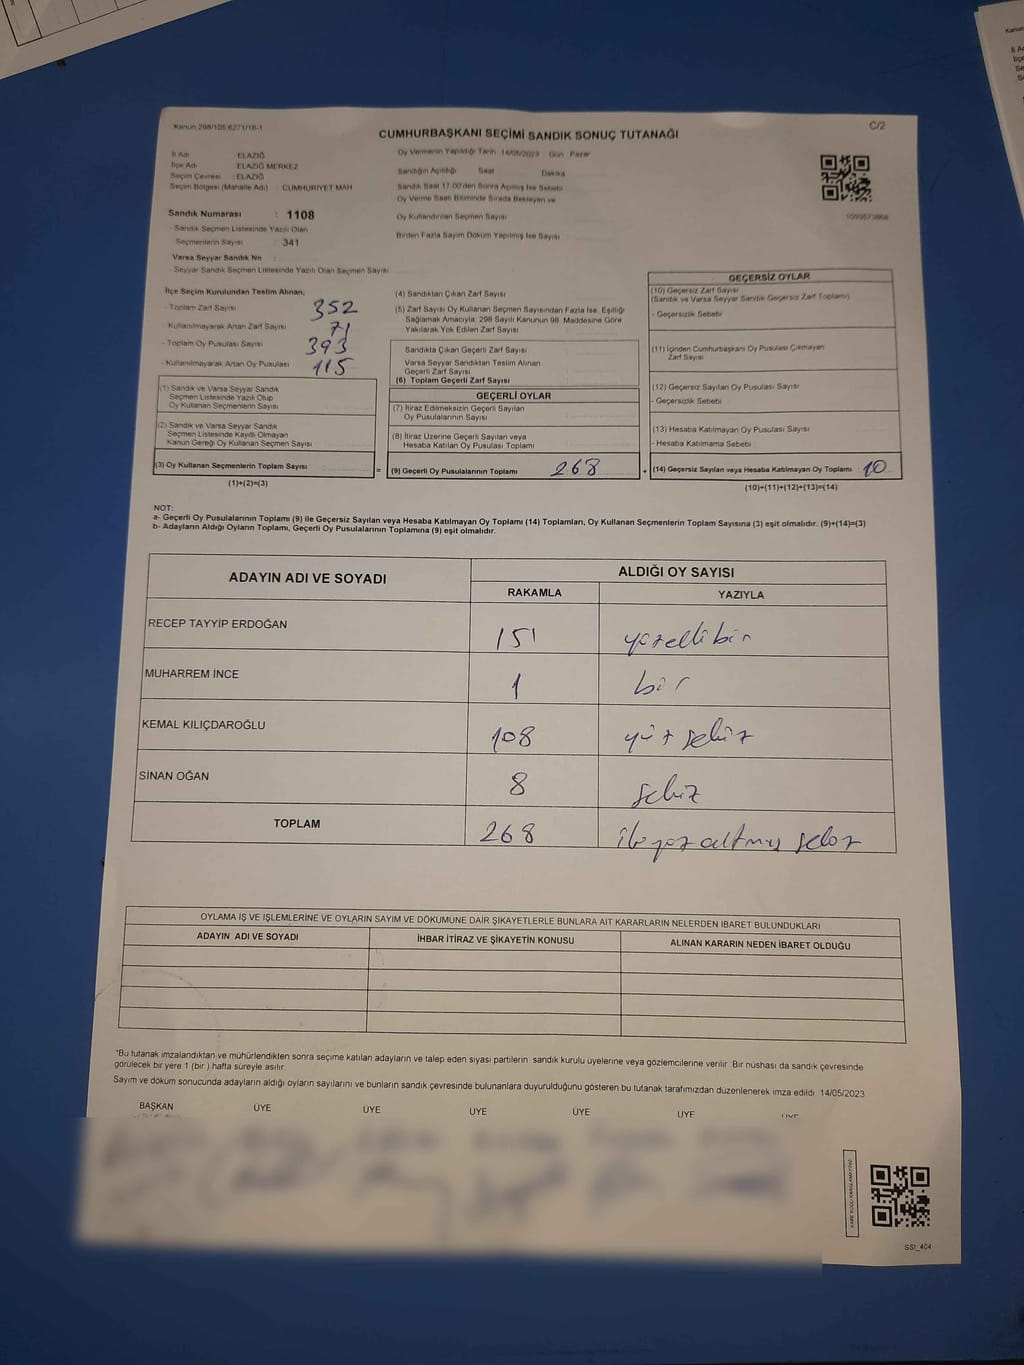 Kanun 298/105 6271/18-1
C/2
CUMHURBAŞKANI SEÇİMİ SANDIK SONUÇ TUTANAĞI
İl Adı : ELAZIĞ
İlçe Adı : ELAZIĞ MERKEZ
Seçim Çevresi : ELAZIĞ
Seçim Bölgesi (Mahalle Adı) : CUMHURİYET MAH
Sandık Numarası : 1108
- Sandık Seçmen Listesinde Yazılı Olan
Seçmenlerin Sayısı : 341
Varsa Seyyar Sandık No :
- Seyyar Sandık Seçmen Listesinde Yazılı Olan Seçmen Sayısı
Oy Vermenin Yapıldığı Tarih 14/05/2023 Gün Pazar
Sandığın Açıldığı Saat Dakika
Sandık Saat 17.00'den Sonra Açılmış İse Sebebi
Oy Verme Saati Bitiminde Sırada Bekleyen ve
Oy Kullandırılan Seçmen Sayısı
Birden Fazla Sayım Döküm Yapılmış İse Sayısı
İlçe Seçim Kurulundan Teslim Alınan;
- Toplam Zarf Sayısı 352
- Kullanılmayarak Artan Zarf Sayısı 71
- Toplam Oy Pusulası Sayısı 393
- Kullanılmayarak Artan Oy Pusulası 115
(1) Sandık ve Varsa Seyyar Sandık
Seçmen Listesinde Yazılı Olup
Oy Kullanan Seçmenlerin Sayısı
(2) Sandık ve Varsa Seyyar Sandık
Seçmen Listesinde Kayıtlı Olmayan
Kanun Gereği Oy Kullanan Seçmen Sayısı
(3) Oy Kullanan Seçmenlerin Toplam Sayısı =
(1)+(2)=(3)
(4) Sandıktan Çıkan Zarf Sayısı
(5) Zarf Sayısı Oy Kullanan Seçmen Sayısından Fazla İse, Eşitliği
Sağlamak Amacıyla; 298 Sayılı Kanunun 98. Maddesine Göre
Yakılarak Yok Edilen Zarf Sayısı
Sandıkta Çıkan Geçerli Zarf Sayısı
Varsa Seyyar Sandıktan Teslim Alınan
Geçerli Zarf Sayısı
(6) Toplam Geçerli Zarf Sayısı
GEÇERLİ OYLAR
(7) İtiraz Edilmeksizin Geçerli Sayılan
Oy Pusulalarının Sayısı
(8) İtiraz Üzerine Geçerli Sayılan veya
Hesaba Katılan Oy Pusulası Toplamı
(9) Geçerli Oy Pusulalarının Toplamı 268 +
GEÇERSİZ OYLAR
(10) Geçersiz Zarf Sayısı
(Sandık ve Varsa Seyyar Sandık Geçersiz Zarf Toplamı)
- Geçersizlik Sebebi
(11) İçinden Cumhurbaşkanı Oy Pusulası Çıkmayan
Zarf Sayısı
(12) Geçersiz Sayılan Oy Pusulası Sayısı
- Geçersizlik Sebebi
(13) Hesaba Katılmayan Oy Pusulası Sayısı
- Hesaba Katılmama Sebebi
(14) Geçersiz Sayılan veya Hesaba Katılmayan Oy Toplamı : 10
(10)+(11)+(12)+(13)=(14)
NOT:
a- Geçerli Oy Pusulalarının Toplamı (9) ile Geçersiz Sayılan veya Hesaba Katılmayan Oy Toplamı (14) Toplamları, Oy Kullanan Seçmenlerin Toplam Sayısına (3) eşit olmalıdır. (9)+(14)=(3)
b- Adayların Aldığı Oyların Toplamı, Geçerli Oy Pusulalarının Toplamına (9) eşit olmalıdır.
ADAYIN ADI VE SOYADI
ALDIĞI OY SAYISI
RAKAMLA YAZIYLA
RECEP TAYYİP ERDOĞAN 151 yüzellibir
MUHARREM İNCE 1 bir
KEMAL KILIÇDAROĞLU 108 yüz sekiz
SİNAN OĞAN 8 sekiz
TOPLAM 268 ikiyüz altmış sekiz
OYLAMA İŞ VE İŞLEMLERİNE VE OYLARIN SAYIM VE DÖKÜMÜNE DAİR ŞİKAYETLERLE BUNLARA AİT KARARLARIN NELERDEN İBARET BULUNDUKLARI
ADAYIN ADI VE SOYADI İHBAR İTİRAZ VE ŞİKAYETİN KONUSU ALINAN KARARIN NEDEN İBARET OLDUĞU
*Bu tutanak imzalandıktan ve mühürlendikten sonra seçime katılan adayların ve talep eden siyasi partilerin sandık kurulu üyelerine veya gözlemcilerine verilir. Bir nüshası da sandık çevresinde
görülecek bir yere 1 (bir) hafta süreyle asılır.
Sayım ve döküm sonucunda adayların aldığı oyların sayılarını ve bunların sandık çevresinde bulunanlara duyurulduğunu gösteren bu tutanak tarafımızdan düzenlenerek imza edildi. 14/05/2023
BAŞKAN ÜYE ÜYE ÜYE ÜYE ÜYE ÜYE
SSI_404